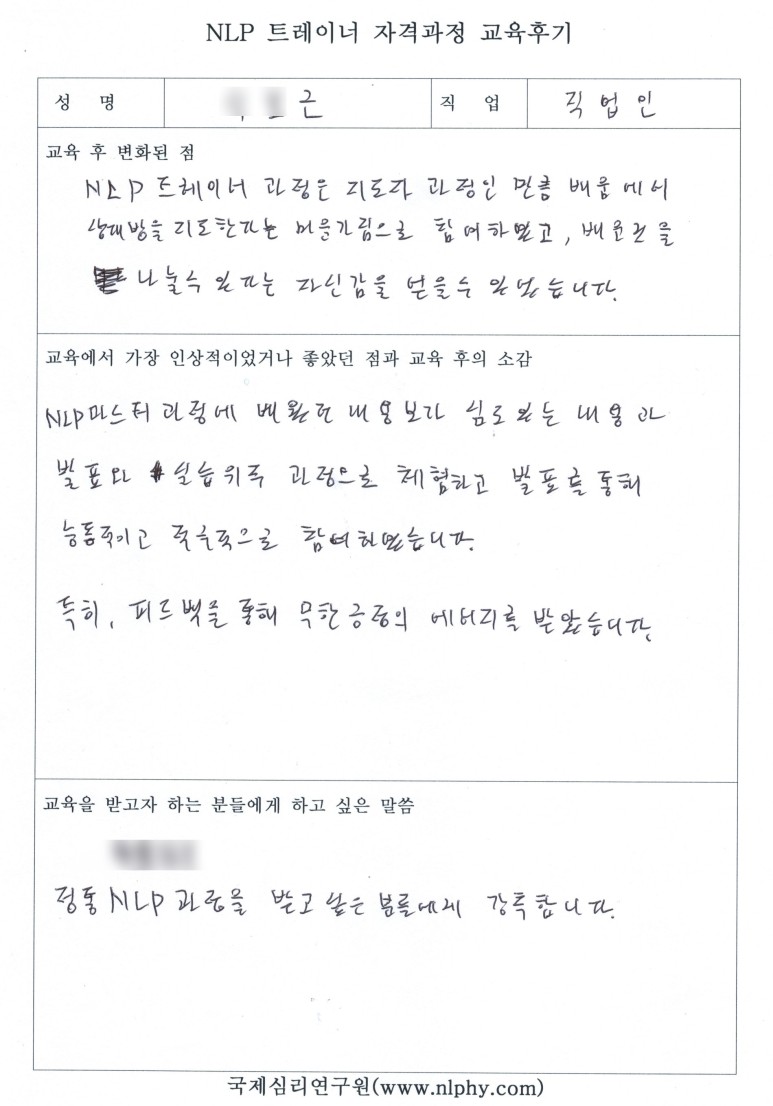 NLP 트레이너 자격과정 교육후기
성 명 근 직 업 직업인
교육 후 변화된 점
NLP 트레이너 과정은 지도자 과정인 만큼 배움에서
상대방을 지도한다는 마음가짐으로 참여하였고, 배운것을
나눌수 있다는 자신감을 얻을수 있었습니다.
교육에서 가장 인상적이었거나 좋았던 점과 교육 후의 소감
NLP마스터 과정에 배웠던 내용보다 심도있는 내용과
발표와 실습위주 과정으로 체험하고 발표를 통해
능동적이고 적극적으로 참여하였습니다.
특히, 피드백을 통해 무한긍정의 에너지를 받았습니다.
교육을 받고자 하는 분들에게 하고 싶은 말씀
정통 NLP 과정을 받고 싶은 분들에게 강력합니다.
국제심리연구원(www.nlphy.com)